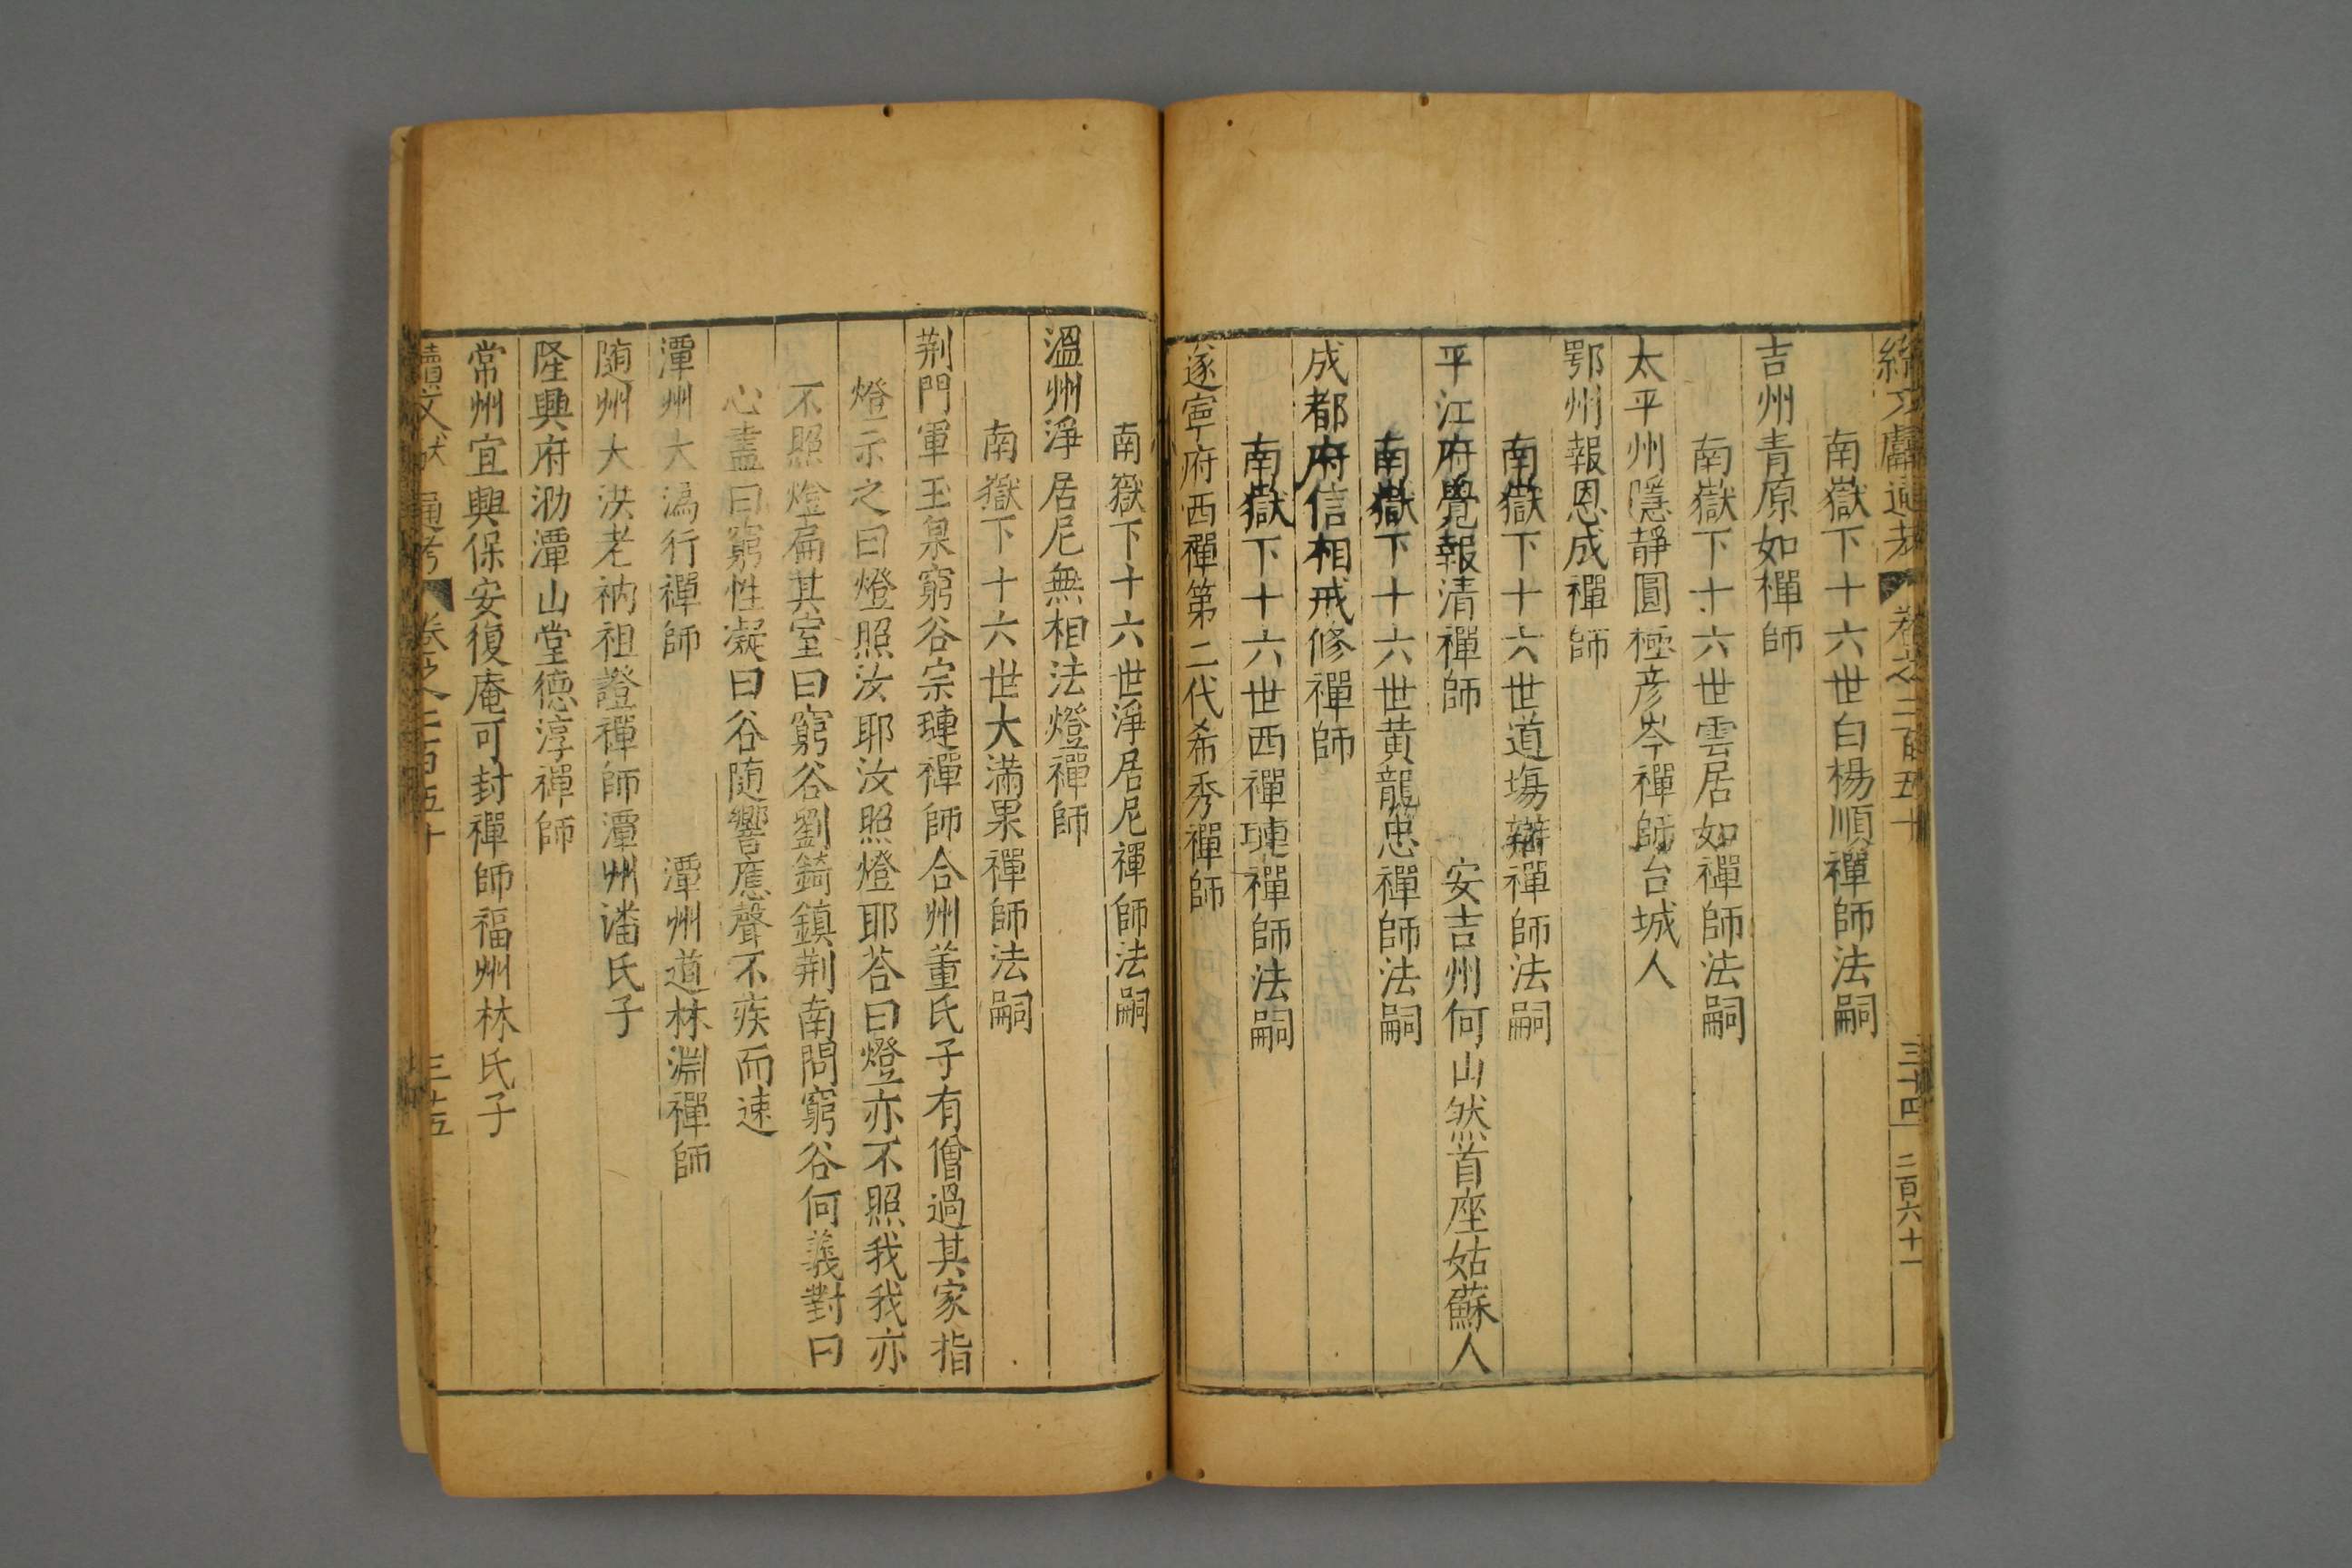 續文獻通考 卷之二百五十 三十四 二百六十一
南嶽下十六世白楊順禪師法嗣
吉州青原如禪師
南嶽下十六世雲居如禪師法嗣
太平州隱靜圓極彥岑禪師台城人
鄂州報恩成禪師
南嶽下十六世道塲辯禪師法嗣
平江府覺報清禪師 安吉州何山然首座姑蘇人
南嶽下十六世黄龍忠禪師法嗣
成都府信相戒修禪師
南嶽下十六世西禪璉禪師法嗣
遂寧府西禪第二代希秀禪師
南嶽下十六世淨居尼禪師法嗣
溫州淨居尼無相法燈禪師
南嶽下十六世大滿果禪師法嗣
荆門軍玉泉窮谷宗璉禪師合州董氏子有僧過其家指
燈示之曰燈照汝耶汝照燈耶荅曰燈亦不照我我亦
不照燈扁其室曰窮谷劉錡鎮荆南問窮谷何義對曰
心盡曰窮性凝曰谷随響應聲不疾而速
潭州大溈行禪師 潭州道林淵禪師
随州大洪老衲祖證禪師潭州潘氏子
隆興府泐潭山堂德淳禪師
常州宜興保安復庵可封禪師福州林氏子
續文獻通考 卷之二百五十 三十五